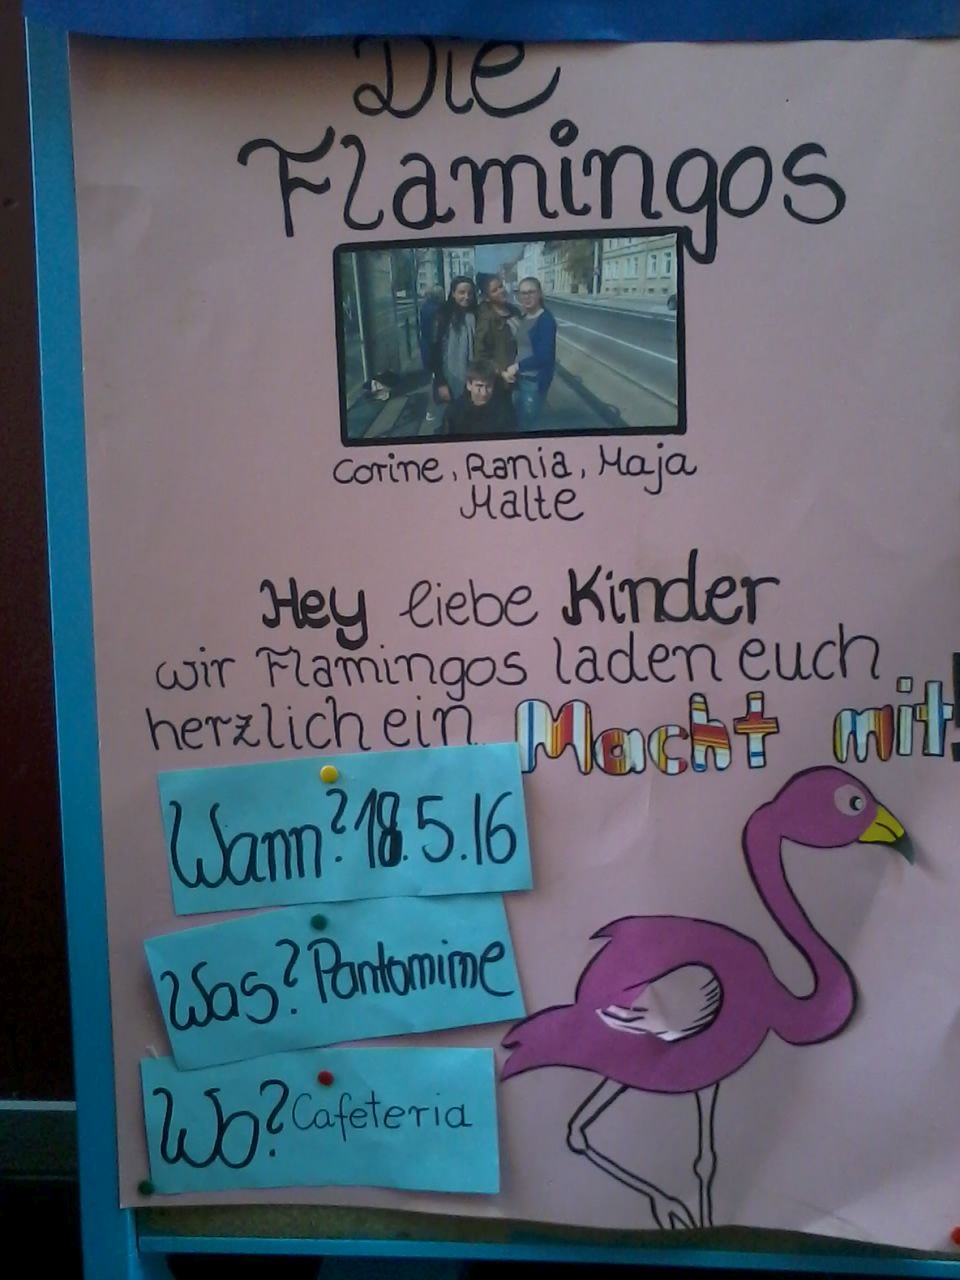 Die
Flamingos
Corine, Rania, Maja
Malte
Hey liebe Kinder
wir Flamingos laden euch
herzlich ein Macht mit!
Wann? 18.5.16
Was? Pantomime
Wo? Cafeteria